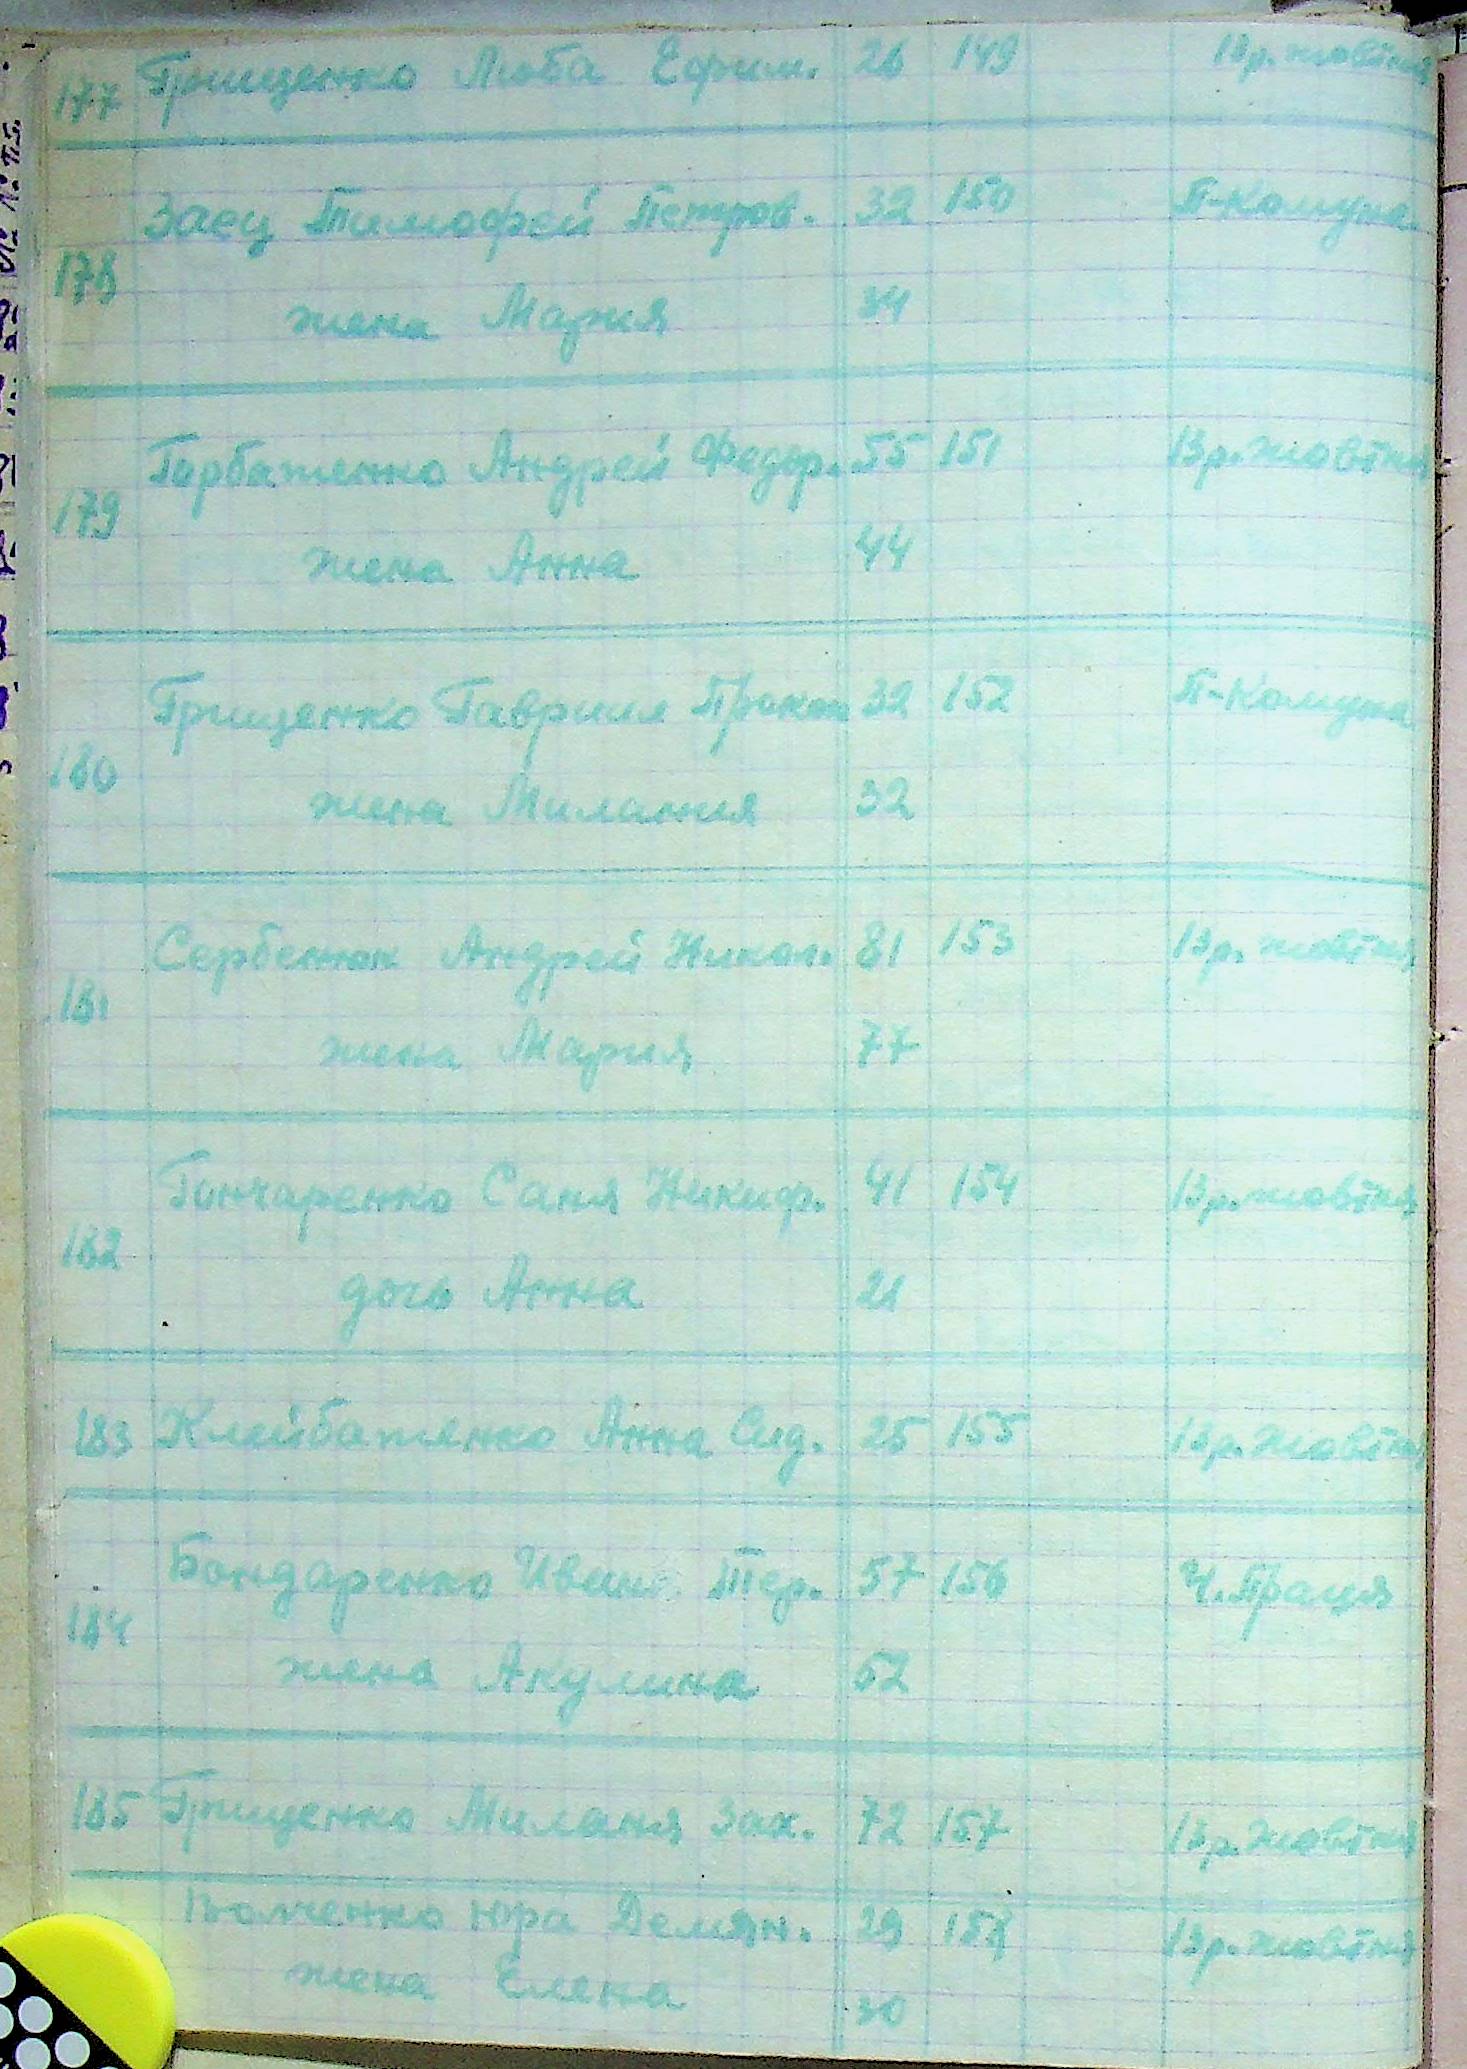 177 Грищенко Люба Ефим. 26 149 13 р. жовтня
178 Заец Тимофей Петров. 32 150 П-Комуна
жена Мария 34
179 Горбатенко Андрей Федор. 55 151 13 р. жовтня
жена Анна 44
180 Грищенко Гавриил Прокоп 32 152 П-Комуна
жена Милания 32
181 Сербенюк Андрей Никол. 81 153 13 р. жовтня
жена Мария 77
182 Гончаренко Саня Никиф. 41 154 13 р. жовтня
дочь Анна 21
183 Клейбатенко Анна Сид. 25 155 13 р. жовтня
184 Бондаренко Иван Тер. 57 156 Ч. Праця
жена Акулина 52
185 Грищенко Миланя Зах. 72 157 13 р. жовтня
Юра Демян. 29 158 13 р. жовтня
жена Елена 30